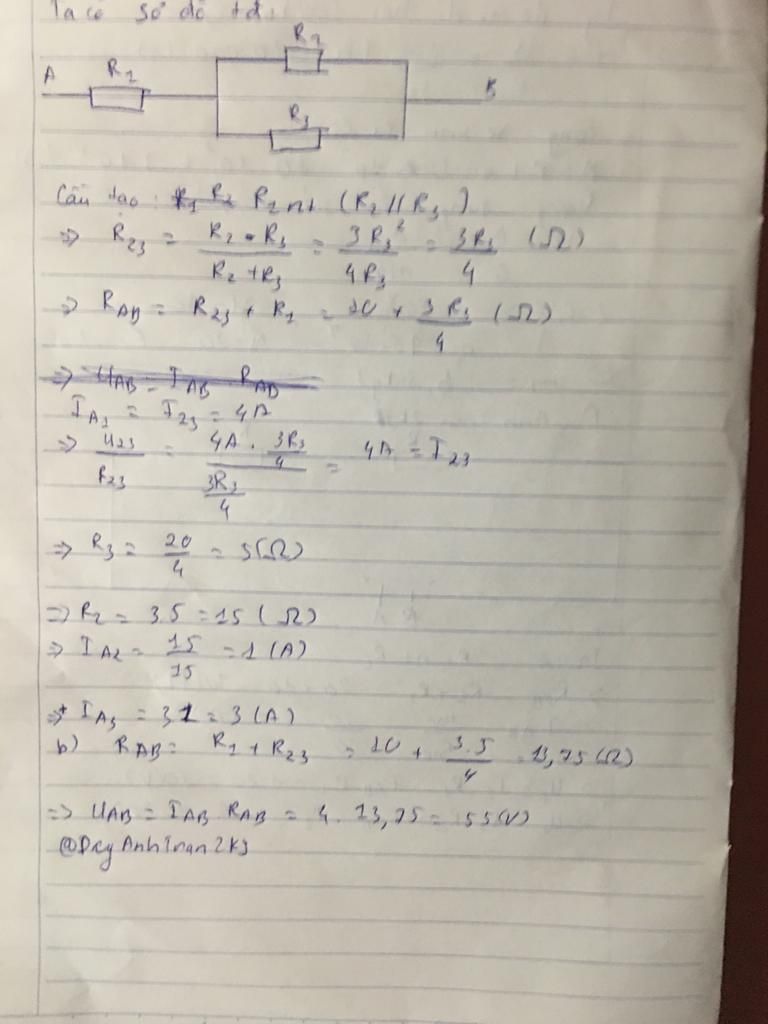 Ta có sơ đồ tđ:
R2
A R1 B
R3
Cấu tạo: R1 R2 R1 nt (R2 // R3)
=> R23 = \frac{R2 . R3}{R2 + R3} = \frac{3R3²}{4R3} = \frac{3R3}{4} (Ω)
=> RAB = R23 + R1 = 10 + \frac{3R3}{4} (Ω)
=> UAB = IAB RAB
IA1 = I23 = 4A
=> \frac{U23}{R23} = \frac{4A . \frac{3R3}{4}}{\frac{3R3}{4}} = 4A = I23
=> R3 = \frac{20}{4} = 5(Ω)
=> R2 = 3.5 = 15 (Ω)
=> IA2 = \frac{15}{15} = 1 (A)
=> IA3 = 3.1 = 3 (A)
b) RAB = R1 + R23 = 10 + \frac{3.5}{4} = 13,75 (Ω)
=> UAB = IAB RAB = 4. 13,75 = 55(V)